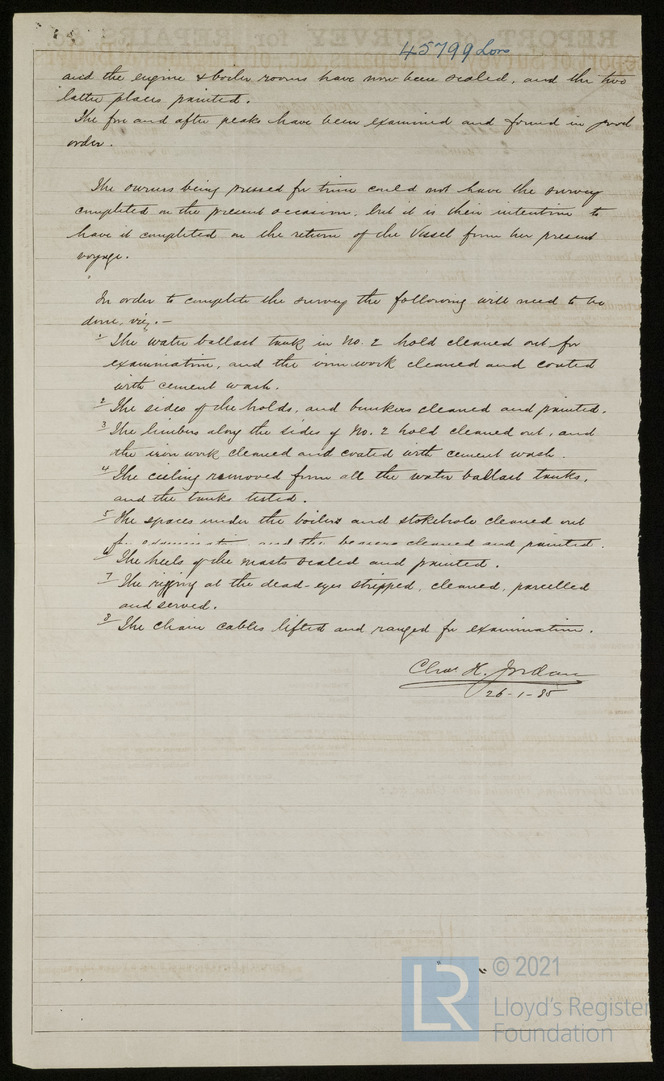 45799 Lon
and the engine & boiler rooms have now been scaled, and the two
latter places painted.
The fore and after peaks have been examined and found in good
order.
The owners being pressed for time could not have the survey
completed on the present occasion, but it is their intention to
have it completed on the return of the Vessel from her present
voyage.
In order to complete the survey the following will need to be
done, viz. -
1 The water ballast tank in No. 2 hold cleaned out for
examination, and the iron work cleaned and coated
with cement wash.
2 The sides of the holds, and bunkers cleaned and painted.
3 The limbers along the sides of No. 2 hold cleaned out, and
the iron work cleaned and coated with cement wash.
4 The ceiling removed from all the water ballast tanks,
and the tanks tested.
5 The spaces under the boilers and stokehole cleaned out
for examination, and the bearers cleaned and painted.
6 The heels of the masts scaled and painted.
7 The rigging at the dead-eyes stripped, cleaned, parcelled
and served.
8 The chain cables lifted and ranged for examination.
Chas. H. Jordan
26-1-85
LR © 2021
Lloyd's Register
Foundation